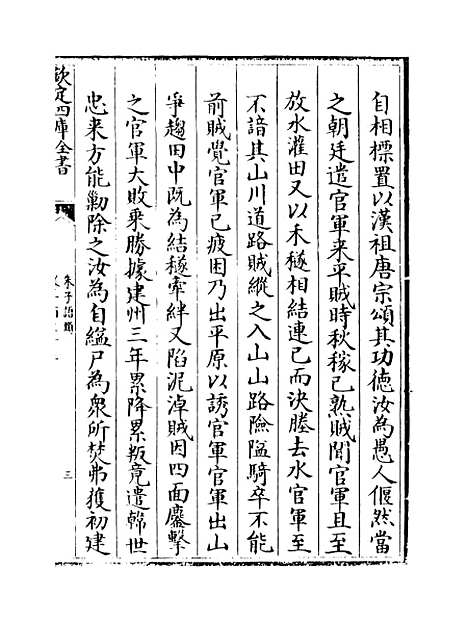 自相標置以漢祖唐宗頌其功德汝為愚人偃然當
之朝廷遣官軍来平賊時秋稼已熟賊聞官軍且至
放水灌田又以禾穟相結連已而決塍去水官軍至
不諳其山川道路賊縱之入山山路險隘騎卒不能
前賊覺官軍已疲困乃出平原以誘官軍官軍出山
爭趨田中既為結穟牽絆又陷泥淖賊因四面鏖擊
之官軍大敗乘勝據建州三年累降累叛竟遣韓世
忠来方能勦除之汝為自縊尸為衆所焚弗獲初建
欽定四庫全書
朱子語類
三